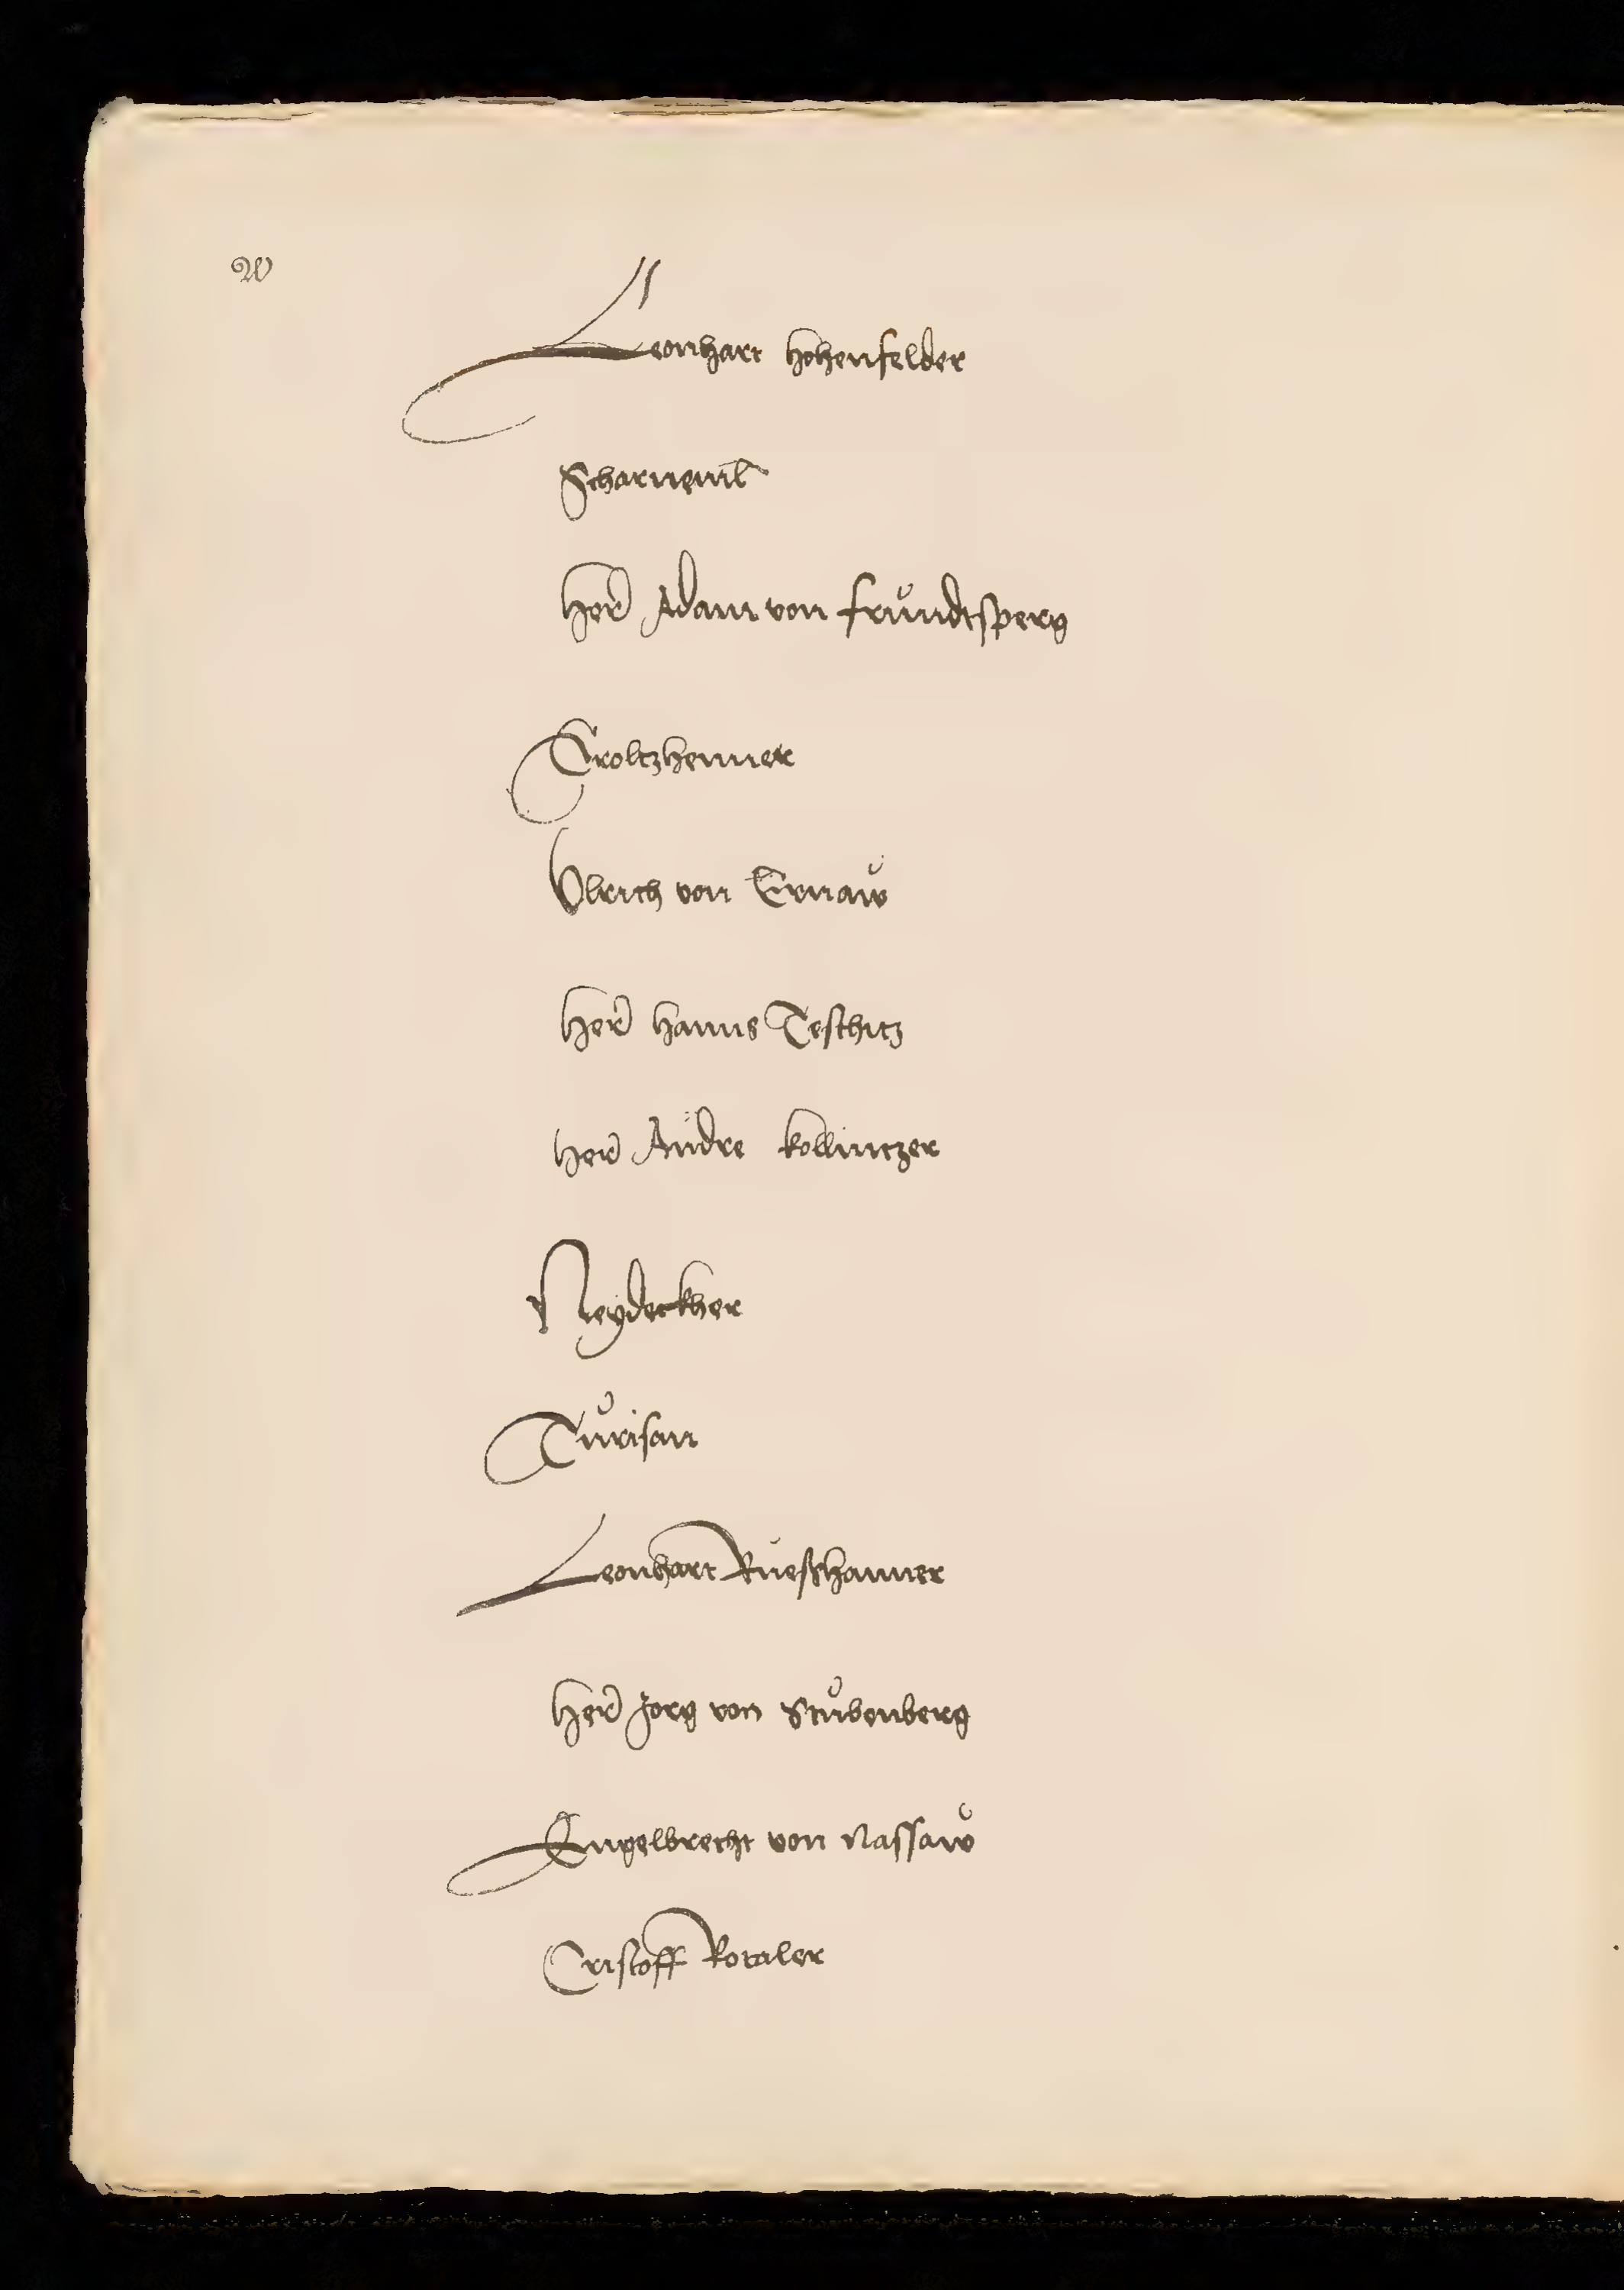 W
Leonhart hohenfelder
Her Adam von frundtsperg
Croltzhemer
Vlrich von Ernaw
Her hanns Teschitz
Her Andre kollintzer
Neydeckher
Turisan
Leonhart
Her Jorg von Stubenberg
Engelbrecht von Nassaw
Cristoff Rotaler